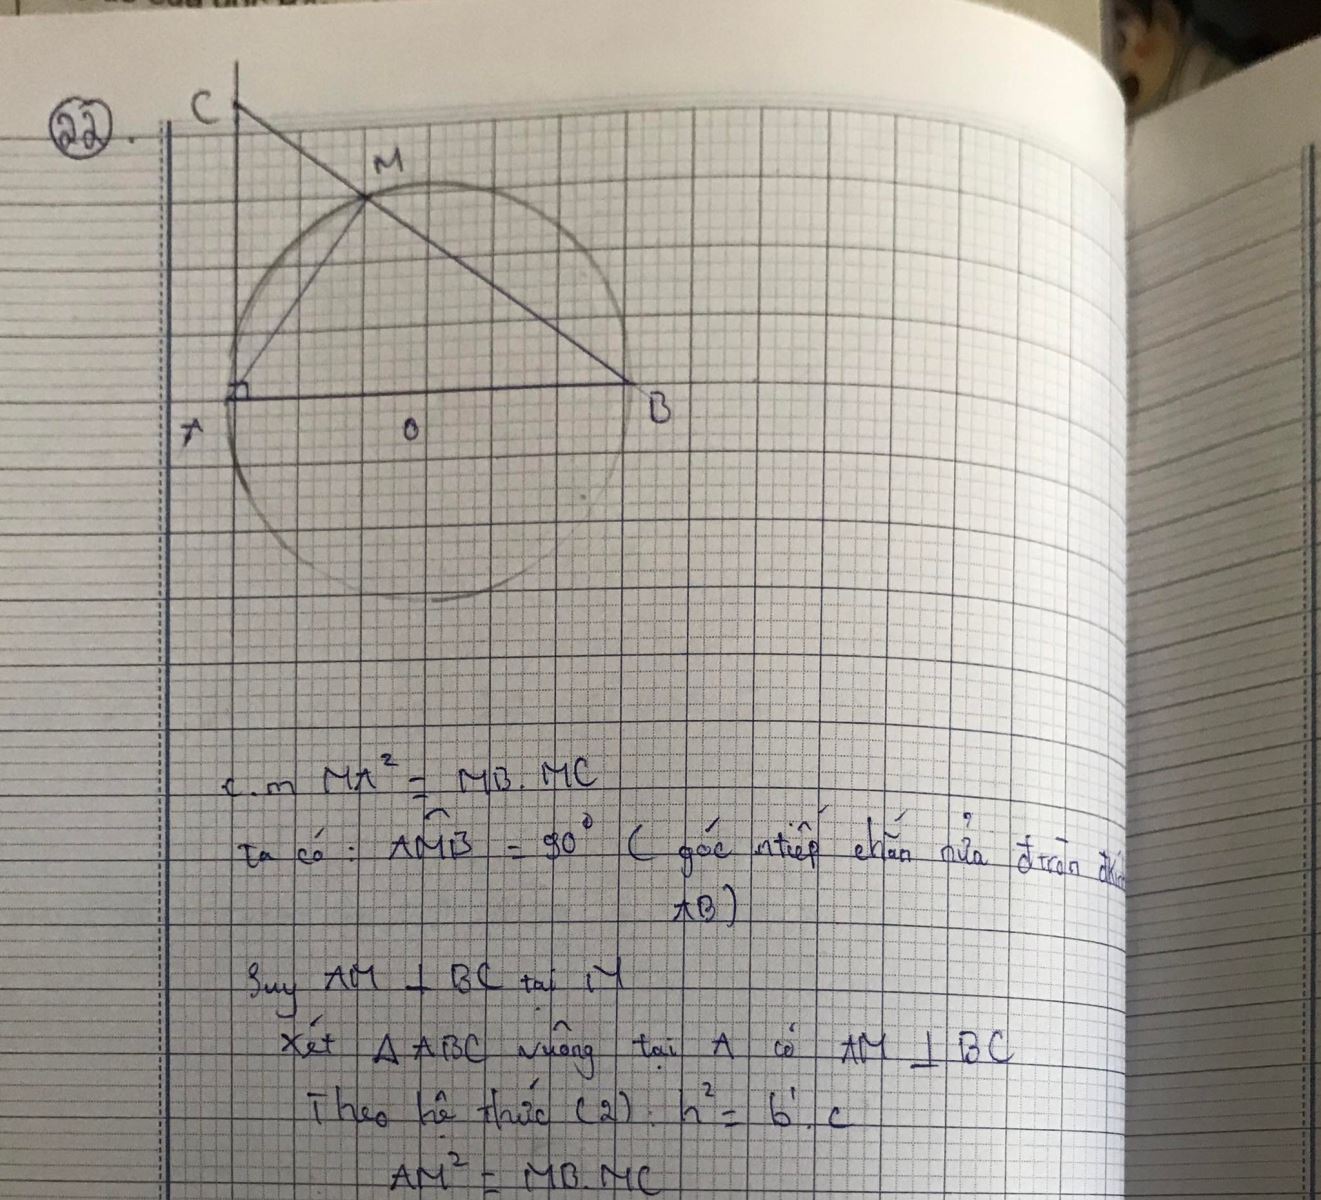 22.
C
M
A
O
B
c.m MA² = MB.MC
Ta có : AM̂B = 90⁰ ( góc ntiếp chắn nửa đtròn đkính
AB)
Suy AM ⊥ BC tại M
Xét Δ ABC vuông tại A có AM ⊥ BC
Theo hệ thức (2). h² = b'.c
AM² = MB.MC